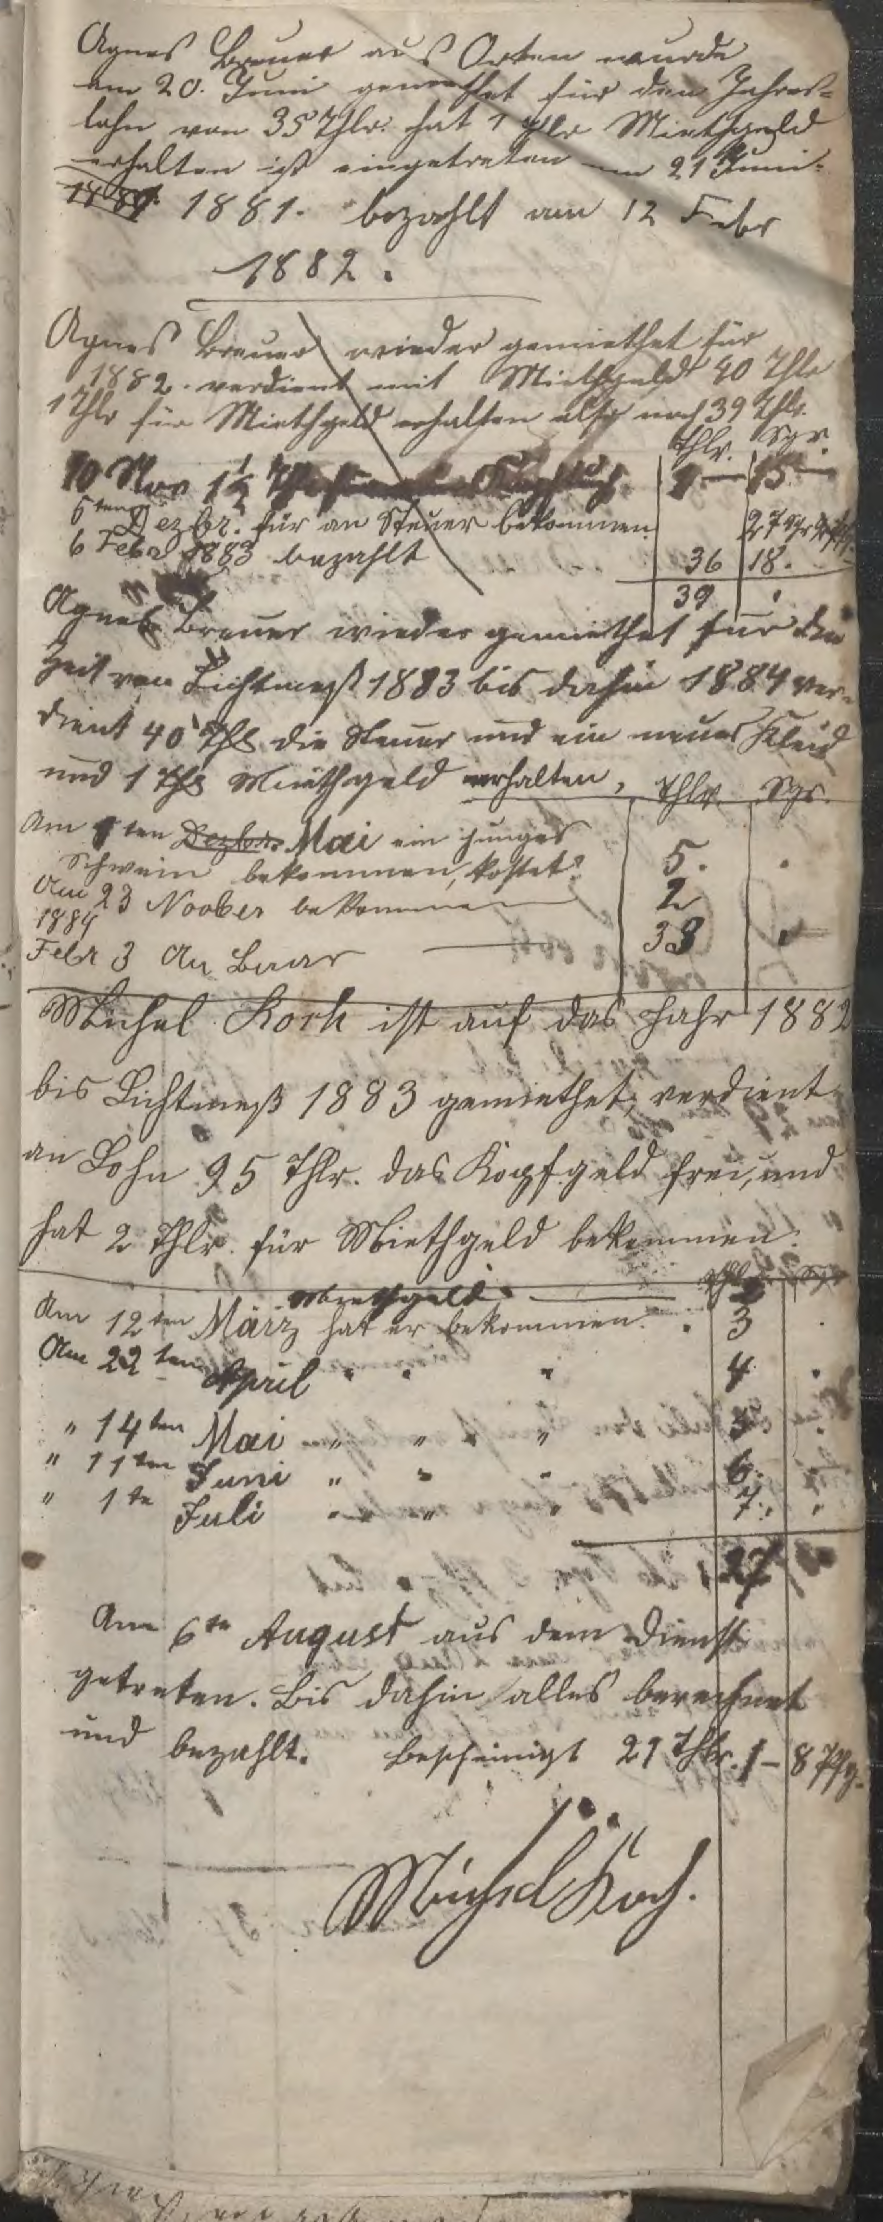 Agnes Breuer aus Orten wurde
am 20. Juni gemiethet für den Jahres=
lohn von 35 Thlr. hat 1 Thlr Miethgeld
erhalten ist eingetreten am 21 Juni.
1881. bezahlt am 12 Febr
1882.
Agnes Breuer wieder gemiethet für
1882. verdient mit Miethgeld 40 Thlr
1 Thlr für Miethgeld erhalten also noch 39 Thlr.
Thlr. Sgr.
10 Nov 1½ 1 — 15 —
5ten Dezbr. für an Steuer bekommen 27 Sgr
6 Febr 1883 bezahlt 36 18.
39 .
Agnes Breuer wieder gemiethet für die
Zeit von Lichtmeß 1883 bis dahin 1884 ver=
dient 40 Thlr die Steuer und ein neues Kleid
und 1 Thlr Miethgeld erhalten, Thlr. Sgr.
Am ten Dezbr. Mai ein junges
Schwein bekommen, kostet 5. .
Am 23 Novber bekommen 2
1884
Febr 3 An Baar — 33 .
Michel Koch ist auf das Jahr 1882
bis Lichtmeß 1883 gemiethet, verdient
an Lohn 95 Thlr. das Kopfgeld frei, und
hat 2 Thlr. für Miethgeld bekommen.
Miethgeld — 2
Am 12ten März hat er bekommen. . 3 .
Am 22ten April " " " 4 .
" 14ten Mai " " " 5 .
" 11ten Juni " " " 6. .
" 1te Juli " " " 7. .
27
Am 6te August aus dem Dienst
getreten. Bis dahin alles berechnet
und bezahlt. Bescheinigt 21 Thlr. 1 — 8 Pfg.
Michel Koch.